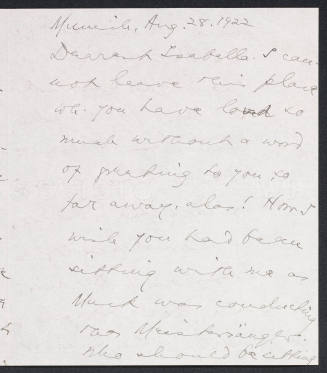 Munich, Aug. 28. 1922
Dearest Isabella. I can-
not leave this place
wh. you have loved so
much without a word
of greeting to you so
far away, alas! How I
wish you had been
sitting with me as
Muck was conducting
Meistersänger.
Who should be sitting